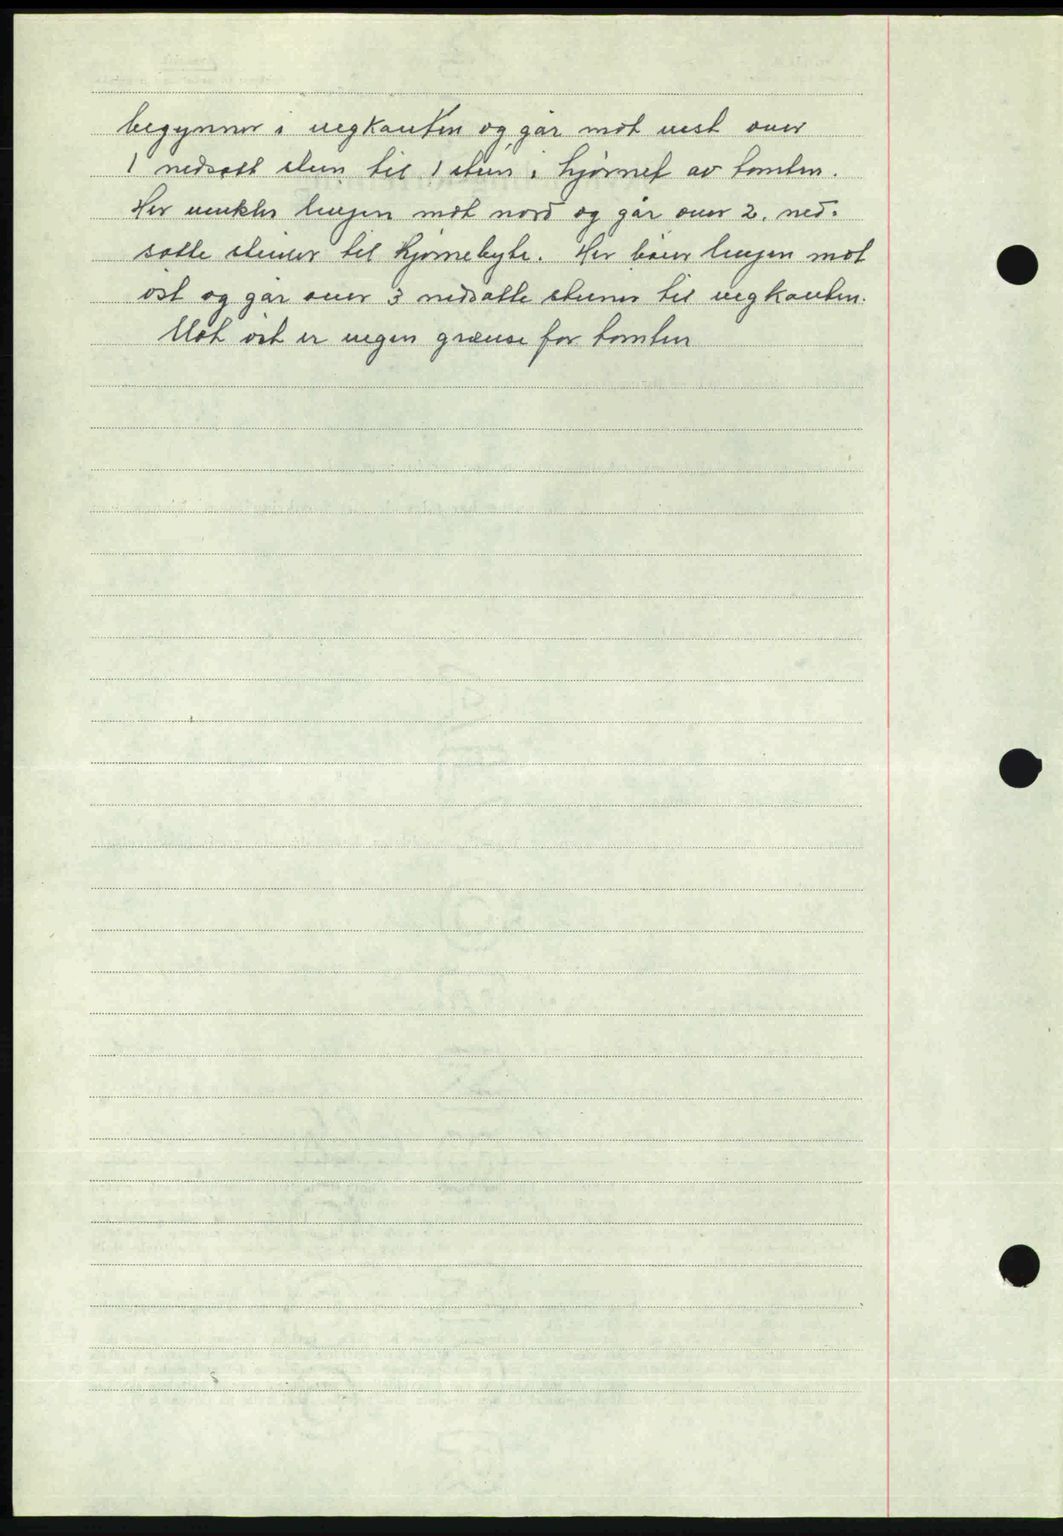 begynner i vegkanten og går mot vest over
1 nedsatt sten til 1 sten i hjørnet av tomten.
Her vinkler linjen mot nord og går over 2. ned-
satte stener til hjørnebyte. Her bøier linjen mot
øst og går over 3 nedsatte stener til vegkanten.
Mot øst er vegen grense for tomten